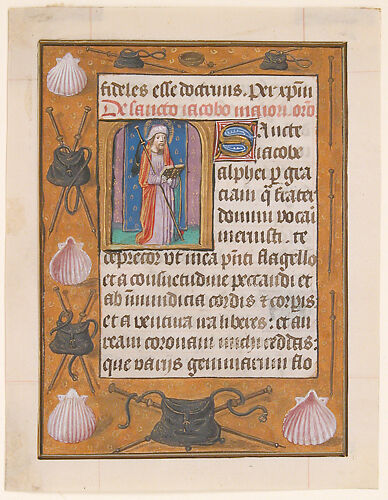 fideles esse doctrinis. Per xp̄m
De sancto iacobo maiori. or̄o
Sancte
iacobe
alphei p̄ gra
ciam q̄ frater
domini vocai
meruisti. te
deprecor vt in ea
et a consuetudine peccandi et
ab inmundicia cordis et corpis
et a ventura ira liberes: et au
ream coronam michi reddas:
que varijs gemmarum flo